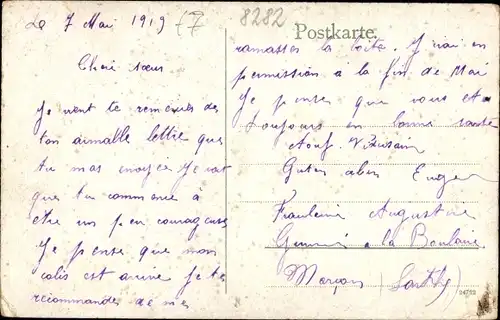 Le 7 Mai 1919
77
8282
Postkarte.
Cheie sœur
Je vient te remercies de
ton aimable lettre que
tu mas envoyee Je voit
que tu commence a
etre un peu courageuse
Je pense que mon
colis est arive Je te
recommandes de me
ramasser la boite. J irai en
permission a la fin de Mai
Je pense que vous ete
toujours en bonne sante
Auf. Widersain
Guten aben Eugen
Fraulein Augustine
a la Boulaie
Marçon (Sarthe)
24752